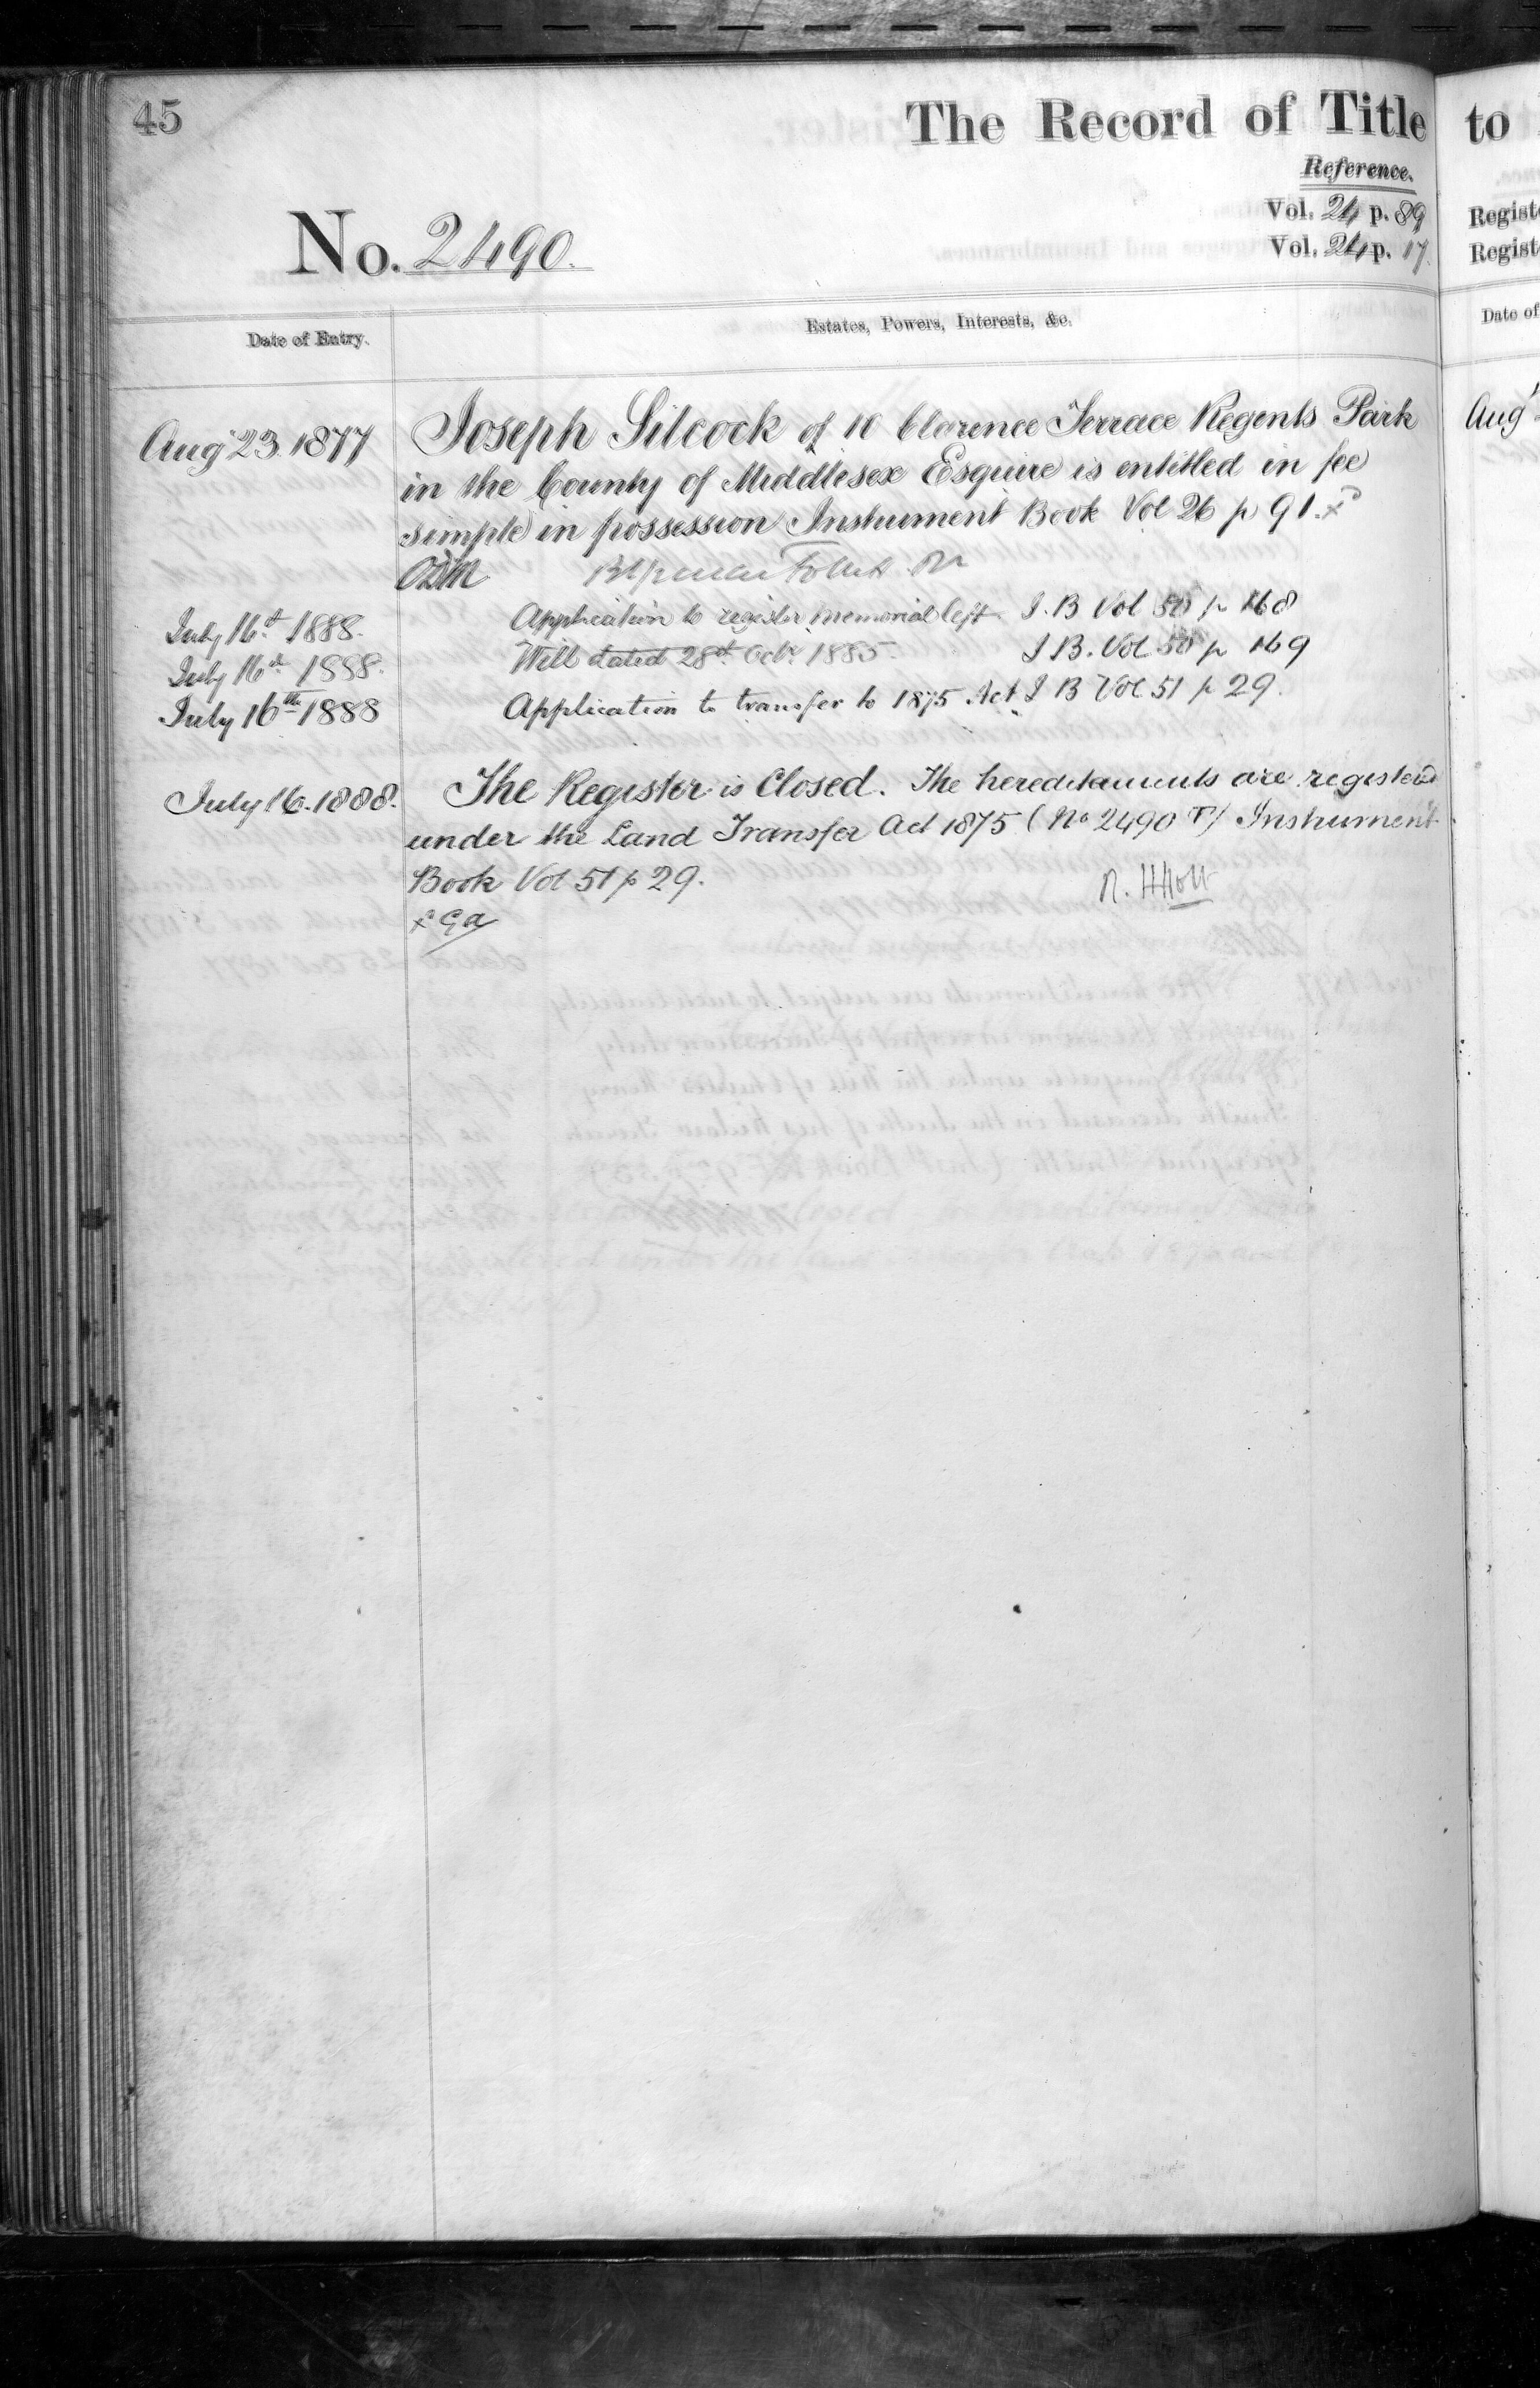 45
The Record of Title to
Reference.
Vol. 24 p. 89 Regist
Vol. 24 p. 17 Regist
No. 2490.
Date of Entry. Estates, Powers, Interests, &c. Date of
Aug 23. 1877 Joseph Silcock of 10 Clarence Terrace Regents Park Aug
in the County of Middlesex Esquire is entitled in fee
simple in possession Instrument Book Vol 26 p 91.
July 16th 1888. Application to register memorial left I. B Vol 50 p 168
July 16th 1888. Will dated 28th Octr 1885 I B. Vol 50 p 169
July 16th 1888 Application to transfer to 1875 Act I B Vol 51 p 29.
July 16. 1888. The Register is Closed. The hereditaments are registered
under the Land Transfer Act 1875 (No 2490 P) Instrument
Book Vol 51 p 29. R. H Holt